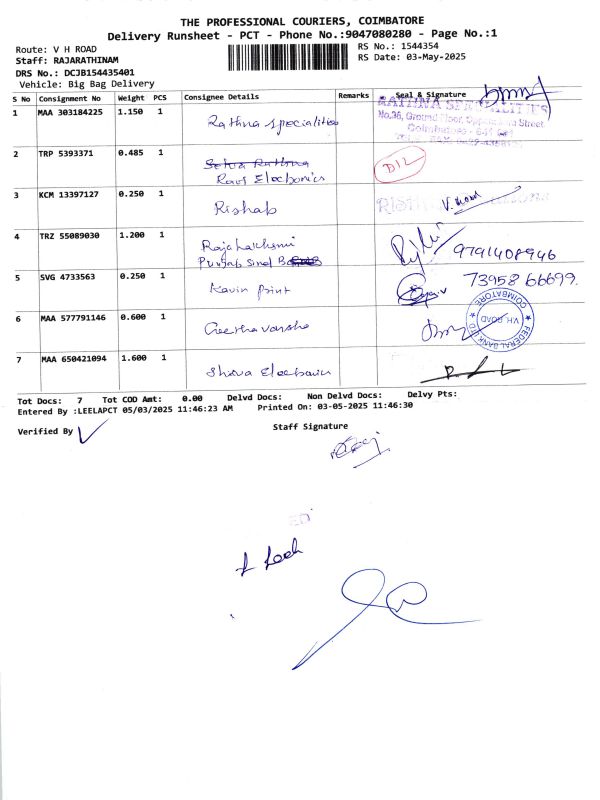 THE PROFESSIONAL COURIERS, COIMBATORE
Delivery Runsheet - PCT - Phone No.:9047080280 - Page No.:1
Route: V H ROAD
RS No.: 1544354
Staff: RAJARATHINAM
RS Date: 03-May-2025
DRS No.: DCJB154435401
Vehicle: Big Bag Delivery
S No Consignment No Weight PCS Consignee Details Remarks Seal & Signature
1 MAA 303184225 1.150 1 Rathna specialities
RATHNA SPECIALITIES
No,36, Ground Floor, Street,
Coimbatore
2 TRP 5393371 0.485 1 Rathna
Ravi Electronics D/L
3 KCM 13397127 0.250 1 Rishab V. Hood
4 TRZ 55089030 1.200 1 Rajalakshmi
Punjab Sind 9791408946
5 SVG 4733563 0.250 1 Kavin print 73958 66699.
6 MAA 577791146 0.600 1 Geetha varsha
FEDERAL BANK LTD
V.H. ROAD
COIMBATORE
7 MAA 650421094 1.600 1 Shiva
Tot Docs: 7 Tot COD Amt: 0.00 Delvd Docs: Non Delvd Docs: Delvy Pts:
Entered By :LEELAPCT 05/03/2025 11:46:23 AM Printed On: 03-05-2025 11:46:30
Verified By
Staff Signature